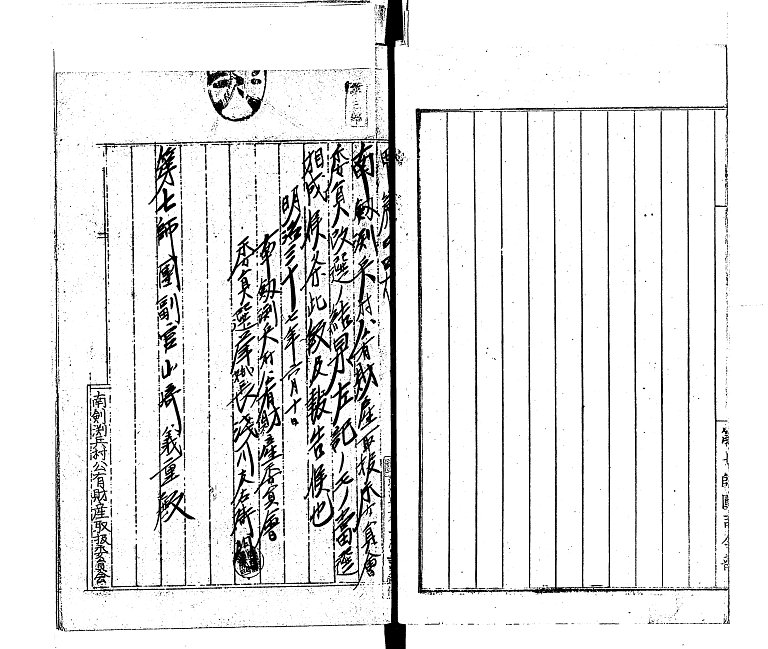 南劔渕兵村公有財産取扱委員會
委員改選ノ結果左記ノモノ當選
相成候条此段及報告候也
明治三十七年六月十日
南劔渕兵村公有財産委員會
委員選挙長浅川
第七師團副官山崎義重殿
南劍渕兵村公有財産取扱委員会
第七師團司令部